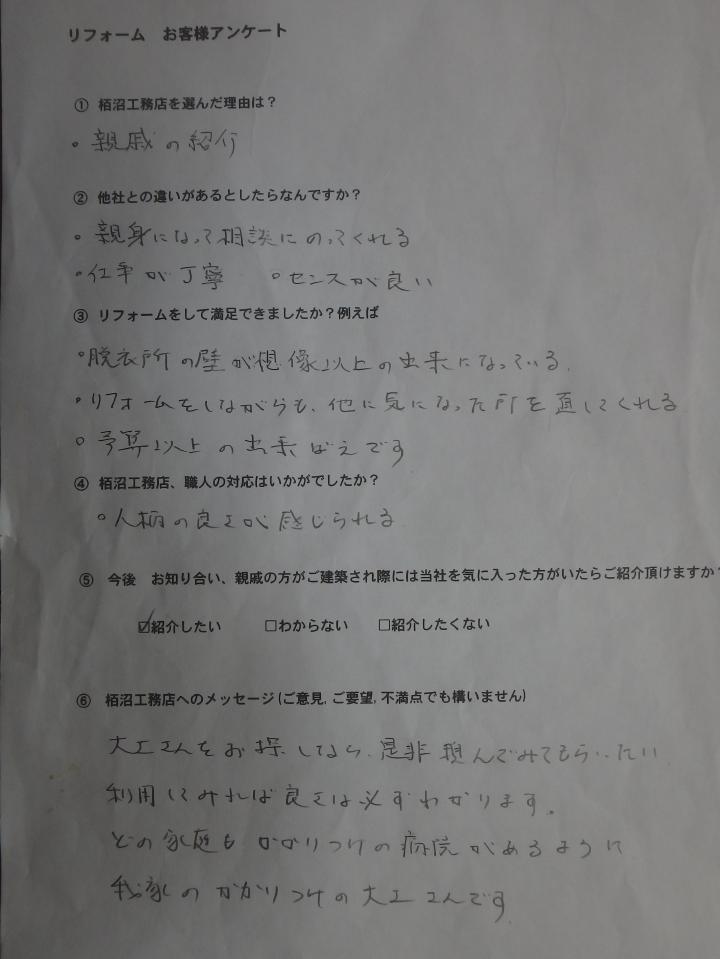 リフォーム　お客様アンケート
① 栢沼工務店を選んだ理由は？
・親戚の紹介
② 他社との違いがあるとしたらなんですか？
・親身になって相談にのってくれる
・仕事が丁寧　・センスが良い
③ リフォームをして満足できましたか？例えば
・脱衣所の壁が想像以上の出来になっている。
・リフォームをしながらも、他に気になった所を直してくれる
・予算以上の出来ばえです
④ 栢沼工務店、職人の対応はいかがでしたか？
・人柄の良さが感じられる
⑤ 今後　お知り合い、親戚の方がご建築され際には当社を気に入った方がいたらご紹介頂けますか？
☑紹介したい　□わからない　□紹介したくない
⑥ 栢沼工務店へのメッセージ(ご意見,ご要望,不満点でも構いません)
大工さんをお探しなら、是非頼んでみてもらいたい
利用してみれば良さは必ずわかります。
どの家庭もかかりつけの病院があるように
我家のかかりつけの大工さんです